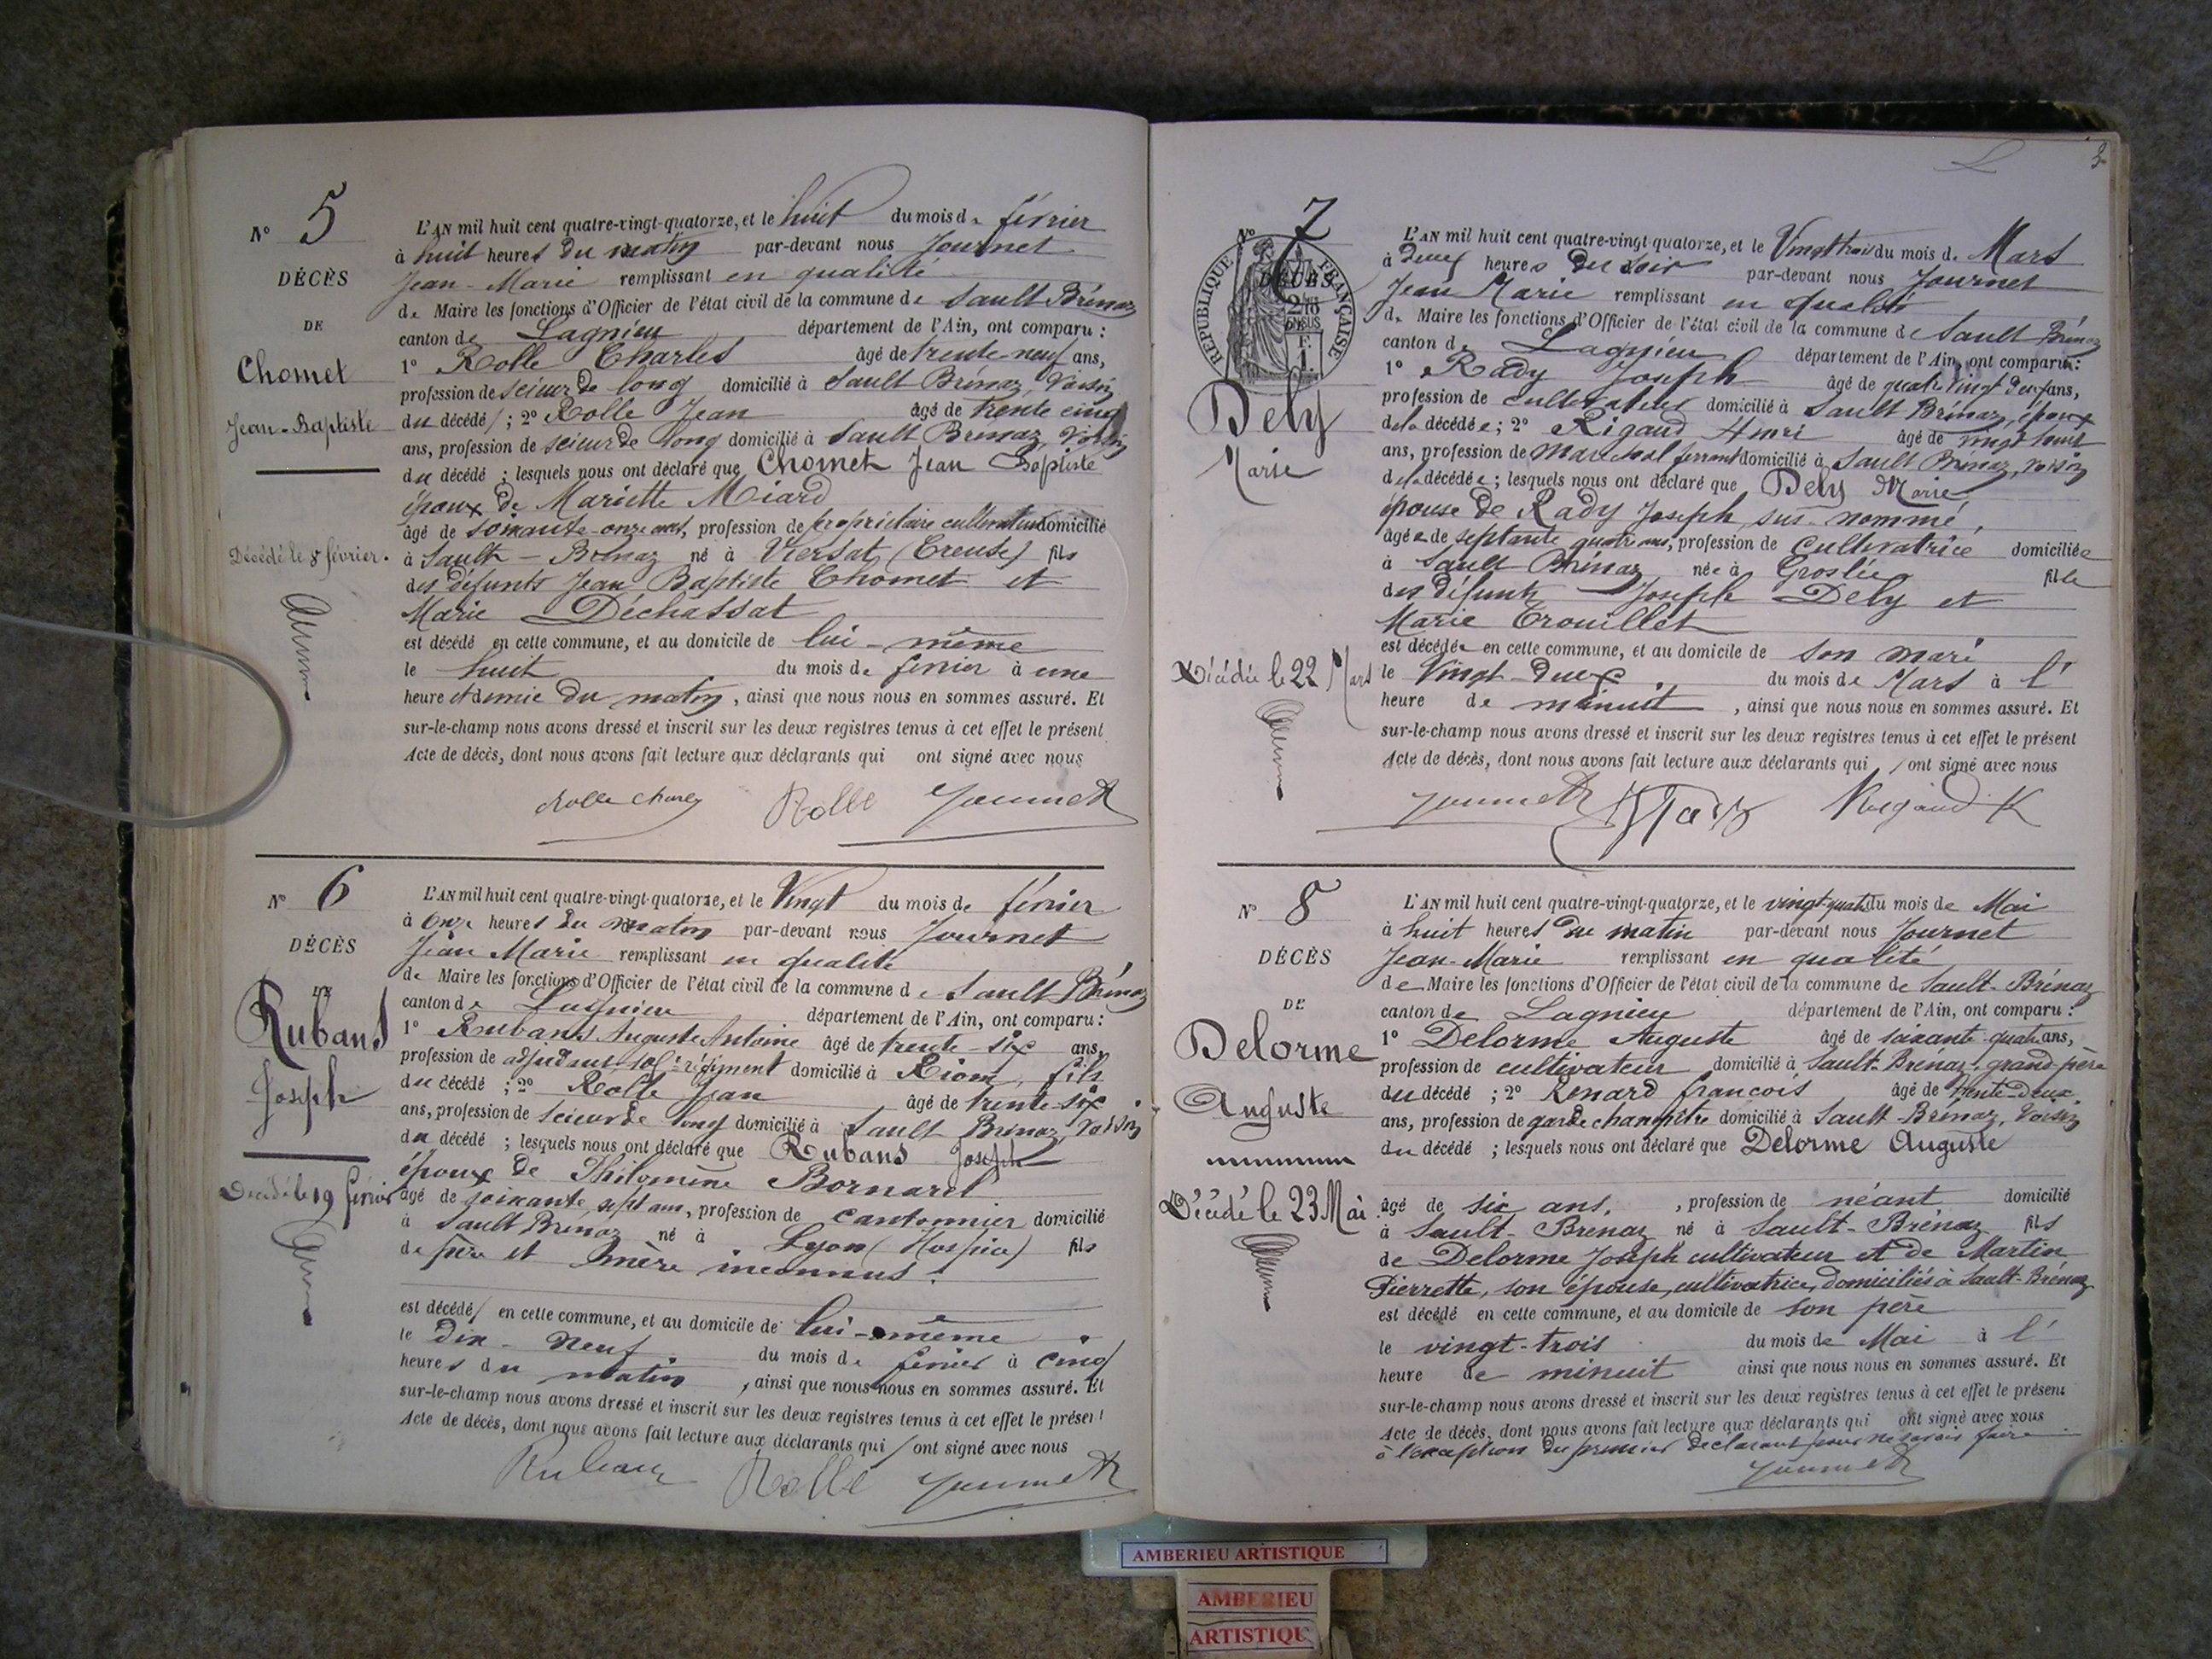 N° 5
DÉCÈS
DE
Chomet
Jean-Baptiste
Décédé le 8 février.
L'AN mil huit cent quatre-vingt-quatorze, et le huit du mois de février
à huit heures du matin par-devant nous Journet
Jean-Marie remplissant en qualité
de Maire les fonctions d'Officier de l'état civil de la commune de Sault Brénaz
canton de Lagnieu département de l'Ain, ont comparu :
1° Rolle Charles âgé de trente-neuf ans,
profession de scieur de long domicilié à Sault Brénaz, Voisin
du décédé ; 2° Rolle Jean âgé de trente cinq
ans, profession de scieur de long domicilié à Sault Brénaz, Voisin
du décédé ; lesquels nous ont déclaré que Chomet Jean Baptiste
époux de Mariette Miard
âgé de soixante-onze ans, profession de propriétaire cultivateur domicilié
à Sault-Brénaz né à Viersat (Creuse) fils
des défunts Jean Baptiste Chomet et
Marie Déchassat
est décédé en cette commune, et au domicile de lui-même
le huit du mois de février à une
heure et demie du matin, ainsi que nous nous en sommes assuré. Et
sur-le-champ nous avons dressé et inscrit sur les deux registres tenus à cet effet le présent
Acte de décès, dont nous avons fait lecture aux déclarants qui ont signé avec nous
Rolle Charles Rolle Journet
N° 6
DÉCÈS
DE
Rubans
Joseph
Décédé le 19 février
L'AN mil huit cent quatre-vingt-quatorze, et le Vingt du mois de février
à onze heures du matin par-devant nous Journet
Jean Marie remplissant en qualité
de Maire les fonctions d'Officier de l'état civil de la commune de Sault Brénaz
canton de Lagnieu département de l'Ain, ont comparu :
1° Rubans Auguste Antoine âgé de trente-six ans,
profession de adjudant régiment domicilié à Riom, fils
du décédé ; 2° Rolle Jean âgé de trente-six
ans, profession de scieur de long domicilié à Sault Brénaz, Voisin
du décédé ; lesquels nous ont déclaré que Rubans Joseph
époux de Philomène Bornarel
âgé de soixante sept ans, profession de cantonnier domicilié
à Sault Brénaz né à Lyon (Hospice) fils
de père et mère inconnus.
est décédé en cette commune, et au domicile de lui-même
le dix-neuf du mois de février à cinq
heures du matin, ainsi que nous nous en sommes assuré. Et
sur-le-champ nous avons dressé et inscrit sur les deux registres tenus à cet effet le présent
Acte de décès, dont nous avons fait lecture aux déclarants qui ont signé avec nous
Rubans Rolle Journet
3
N° 7
DÉCÈS
DE
RÉPUBLIQUE FRANÇAISE
Dely
Marie
Décédée le 22 Mars
L'AN mil huit cent quatre-vingt-quatorze, et le Vingt trois du mois de Mars
à deux heures du soir par-devant nous Journet
Jean Marie remplissant en qualité
de Maire les fonctions d'Officier de l'état civil de la commune de Sault Brénaz
canton de Lagnieu département de l'Ain, ont comparu :
1° Rady Joseph âgé de quatre vingt deux ans,
profession de cultivateur domicilié à Sault Brénaz, époux
de la décédée ; 2° Rigaud Henri âgé de vingt huit
ans, profession de Maréchal ferrant domicilié à Sault Brénaz, voisin
de la décédée ; lesquels nous ont déclaré que Dely Marie
épouse de Rady Joseph sus-nommé,
âgée de septante quatre ans, profession de cultivatrice domiciliée
à Sault Brénaz née à Groslée fille
des défunts Joseph Dely et
Marie Trouillet
est décédée en cette commune, et au domicile de son mari
le Vingt-deux du mois de Mars à l'
heure de minuit, ainsi que nous nous en sommes assuré. Et
sur-le-champ nous avons dressé et inscrit sur les deux registres tenus à cet effet le présent
Acte de décès, dont nous avons fait lecture aux déclarants qui ont signé avec nous
Journet Rigaud
N° 8
DÉCÈS
DE
Delorme
Auguste
Décédé le 23 Mai
L'AN mil huit cent quatre-vingt-quatorze, et le vingt-quatre du mois de Mai
à huit heures du matin par-devant nous Journet
Jean-Marie remplissant en qualité
de Maire les fonctions d'Officier de l'état civil de la commune de Sault-Brénaz
canton de Lagnieu département de l'Ain, ont comparu :
1° Delorme Auguste âgé de soixante-quatre ans,
profession de cultivateur domicilié à Sault-Brénaz, grand-père
du décédé ; 2° Renard françois âgé de trente-deux
ans, profession de garde champêtre domicilié à Sault-Brénaz, Voisin
du décédé ; lesquels nous ont déclaré que Delorme Auguste
âgé de six ans, profession de néant domicilié
à Sault-Brénaz né à Sault-Brénaz fils
de Delorme Joseph cultivateur et de Martin
Pierrette, son épouse, cultivatrice, domiciliés à Sault-Brénaz
est décédé en cette commune, et au domicile de son père
le vingt-trois du mois de Mai à l'
heure de minuit ainsi que nous nous en sommes assuré. Et
sur-le-champ nous avons dressé et inscrit sur les deux registres tenus à cet effet le présent
Acte de décès, dont nous avons fait lecture aux déclarants qui ont signé avec nous
à l'exception du premier déclarant pour ne savoir faire
Journet
AMBERIEU ARTISTIQUE
AMBERIEU
ARTISTIQUE